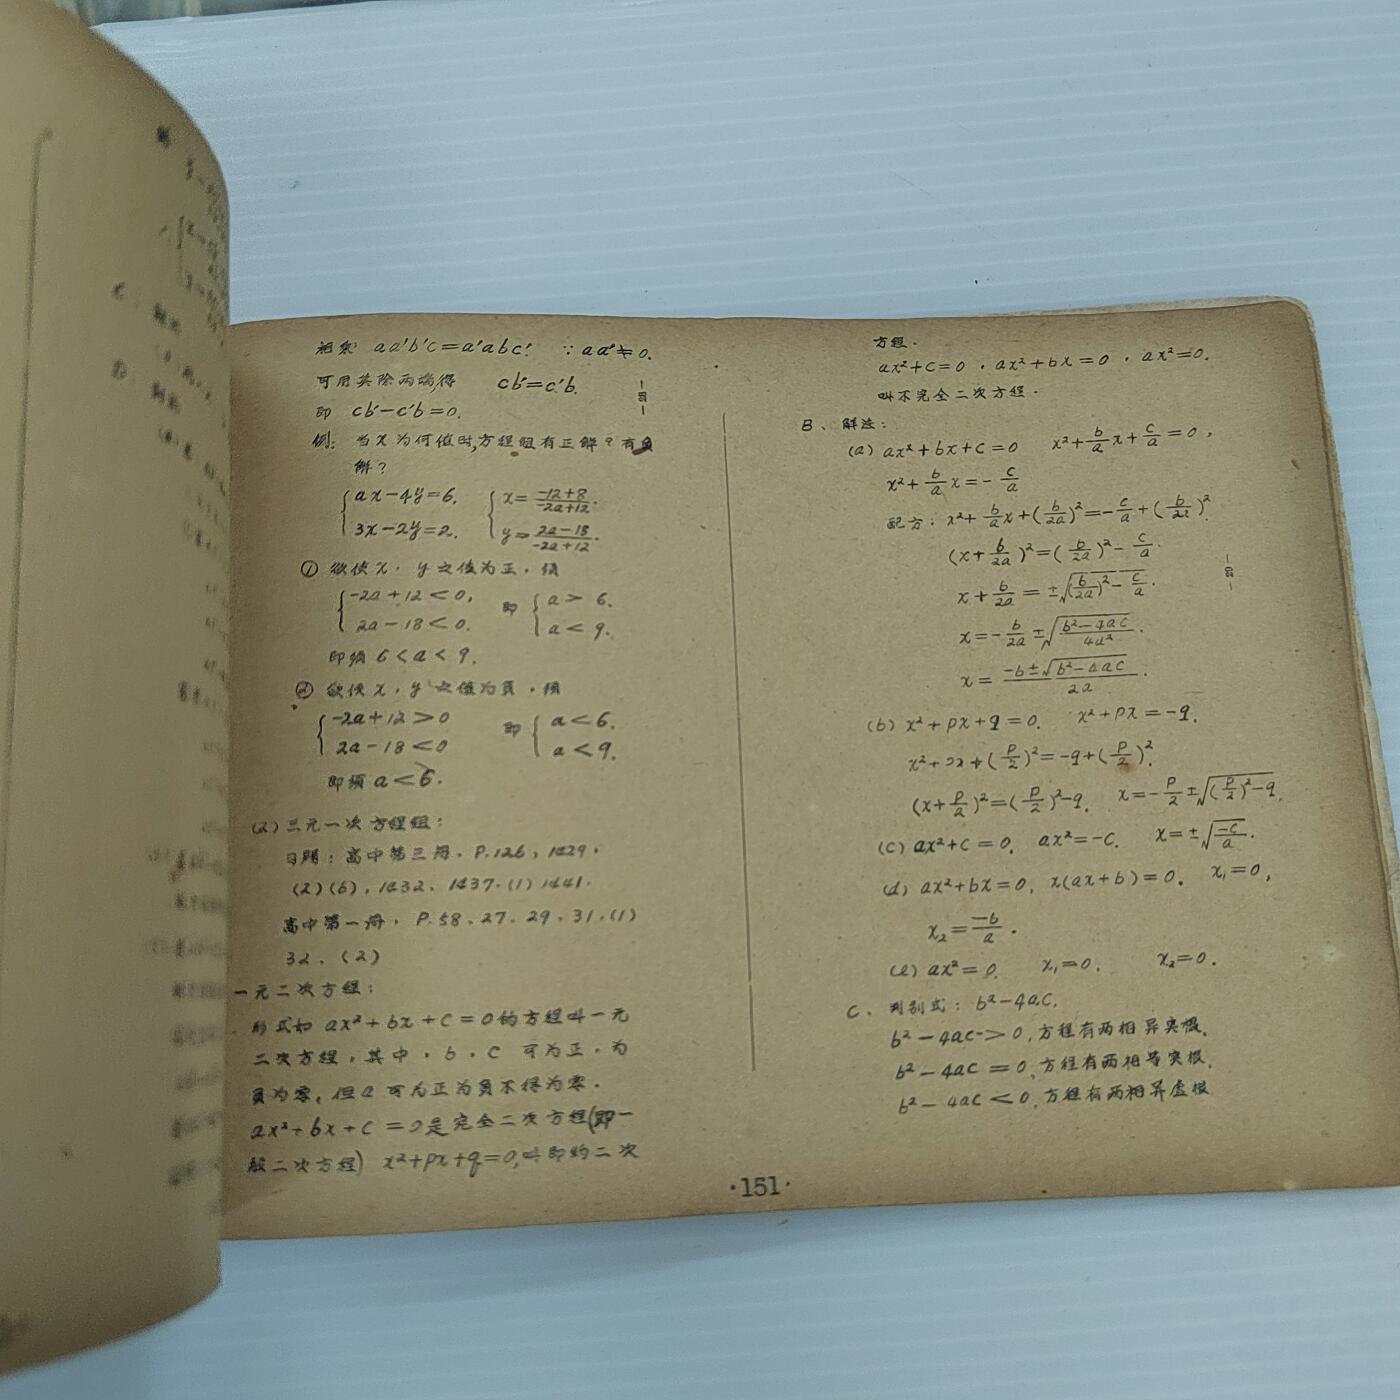 aa'b'c=a'abc'. ∵aa'≒0.
可用其除两端,得 cb'=c'b.
即 cb'-c'b=0.
例: 当x为何值时,方程组有正解?有负
解?
{ax-4y=6. {x=\frac{-12+8}{-2a+12}.
{3x-2y=2. {y=\frac{2a-18}{-2a+12}.
① 欲使x.y之值为正.须
{-2a+12<0, 即 {a>6.
{2a-18<0. {a<9.
即须6<a<9.
② 欲使x,y之值为負.须
{-2a+12>0 即 {a<6.
{2a-18<0 {a<9.
即须a<6.
(2)三元一次方程组:
习题:高中第三册.P.126,1429.
(2)(6),1432、1437.(1)1441.
高中第一册,P.58、27.29、31.(1)
32.(2)
一元二次方程:
形式如 ax²+bx+c=0的方程叫一元
二次方程,其中.b.c 可为正.为
負为零,但a可为正为負不得为零.
ax²+bx+c=0是完全二次方程(即一
般二次方程) x²+px+q=0,叫即约二次
方程.
ax²+c=0.ax²+bx=0.ax²=0.
叫不完全二次方程.
B、解法:
(a) ax²+bx+c=0 x²+\frac{b}{a}x+\frac{c}{a}=0,
x²+\frac{b}{a}x=-\frac{c}{a}
配方:x²+\frac{b}{a}x+(\frac{b}{2a})²=-\frac{c}{a}+(\frac{b}{2a})².
(x+\frac{b}{2a})²=(\frac{b}{2a})²-\frac{c}{a}.
x+\frac{b}{2a}=±√((\frac{b}{2a})²-\frac{c}{a}).
x=-\frac{b}{2a}±√(\frac{b²-4ac}{4a²}).
x=\frac{-b±√(b²-4ac)}{2a}.
(b) x²+px+q=0. x²+px=-q.
x²+px+(\frac{p}{2})²=-q+(\frac{p}{2})².
(x+\frac{p}{2})²=(\frac{p}{2})²-q. x=-\frac{p}{2}±√((\frac{p}{2})²-q).
(c) ax²+c=0. ax²=-c. x=±√(\frac{-c}{a}).
(d) ax²+bx=0, x(ax+b)=0. x₁=0,
x₂=\frac{-b}{a}.
(e) ax²=0. x₁=0. x₂=0.
C、判别式: b²-4ac.
b²-4ac>0,方程有两相异实根.
b²-4ac=0,方程有两相等实根.
b²-4ac<0,方程有两相异虚根
·151·